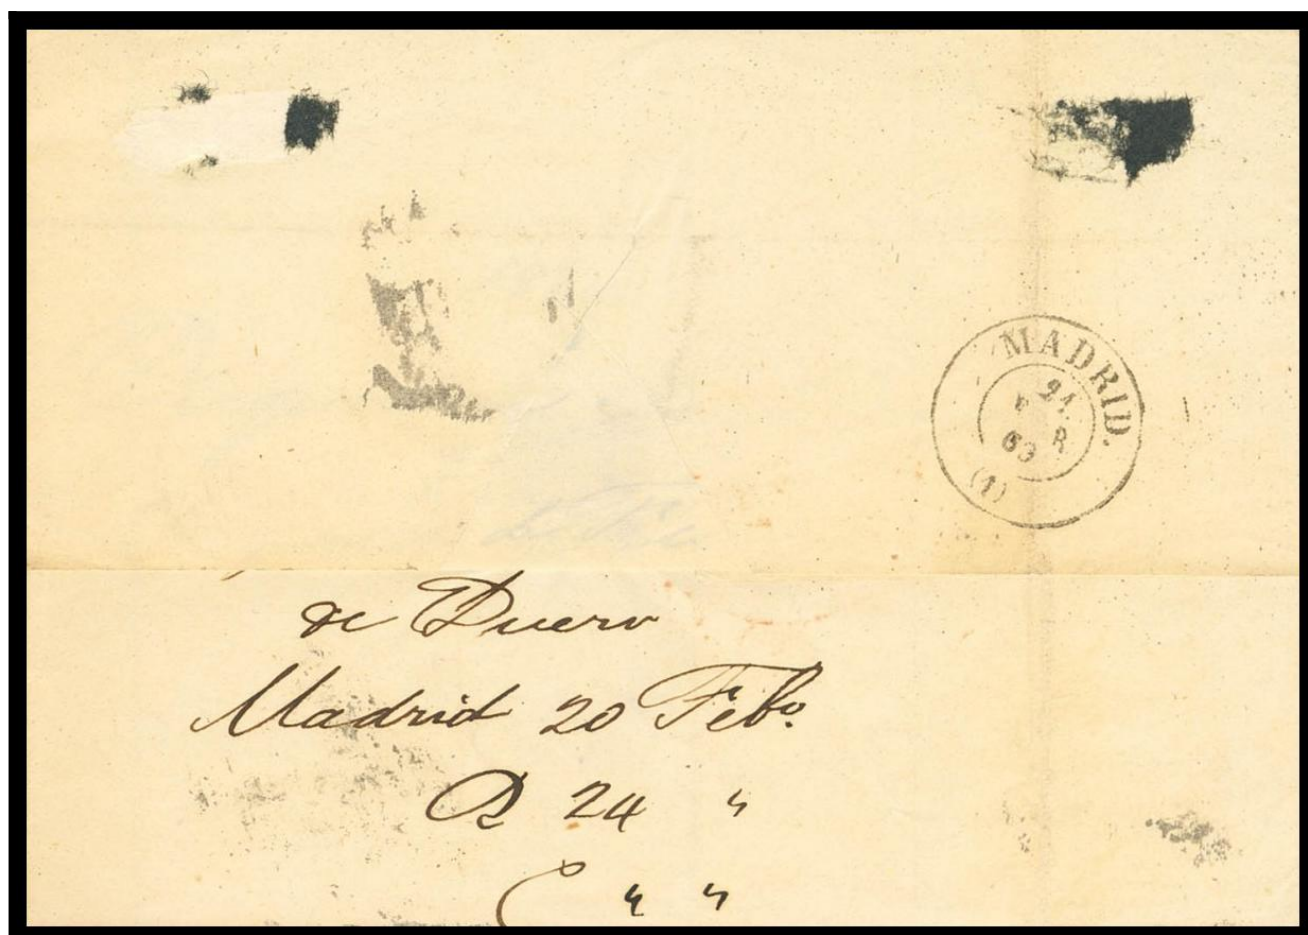 MADRID.
21.
F R
63
(1)
de Duero
Madrid 20 Febº.
R 24 "
C " "